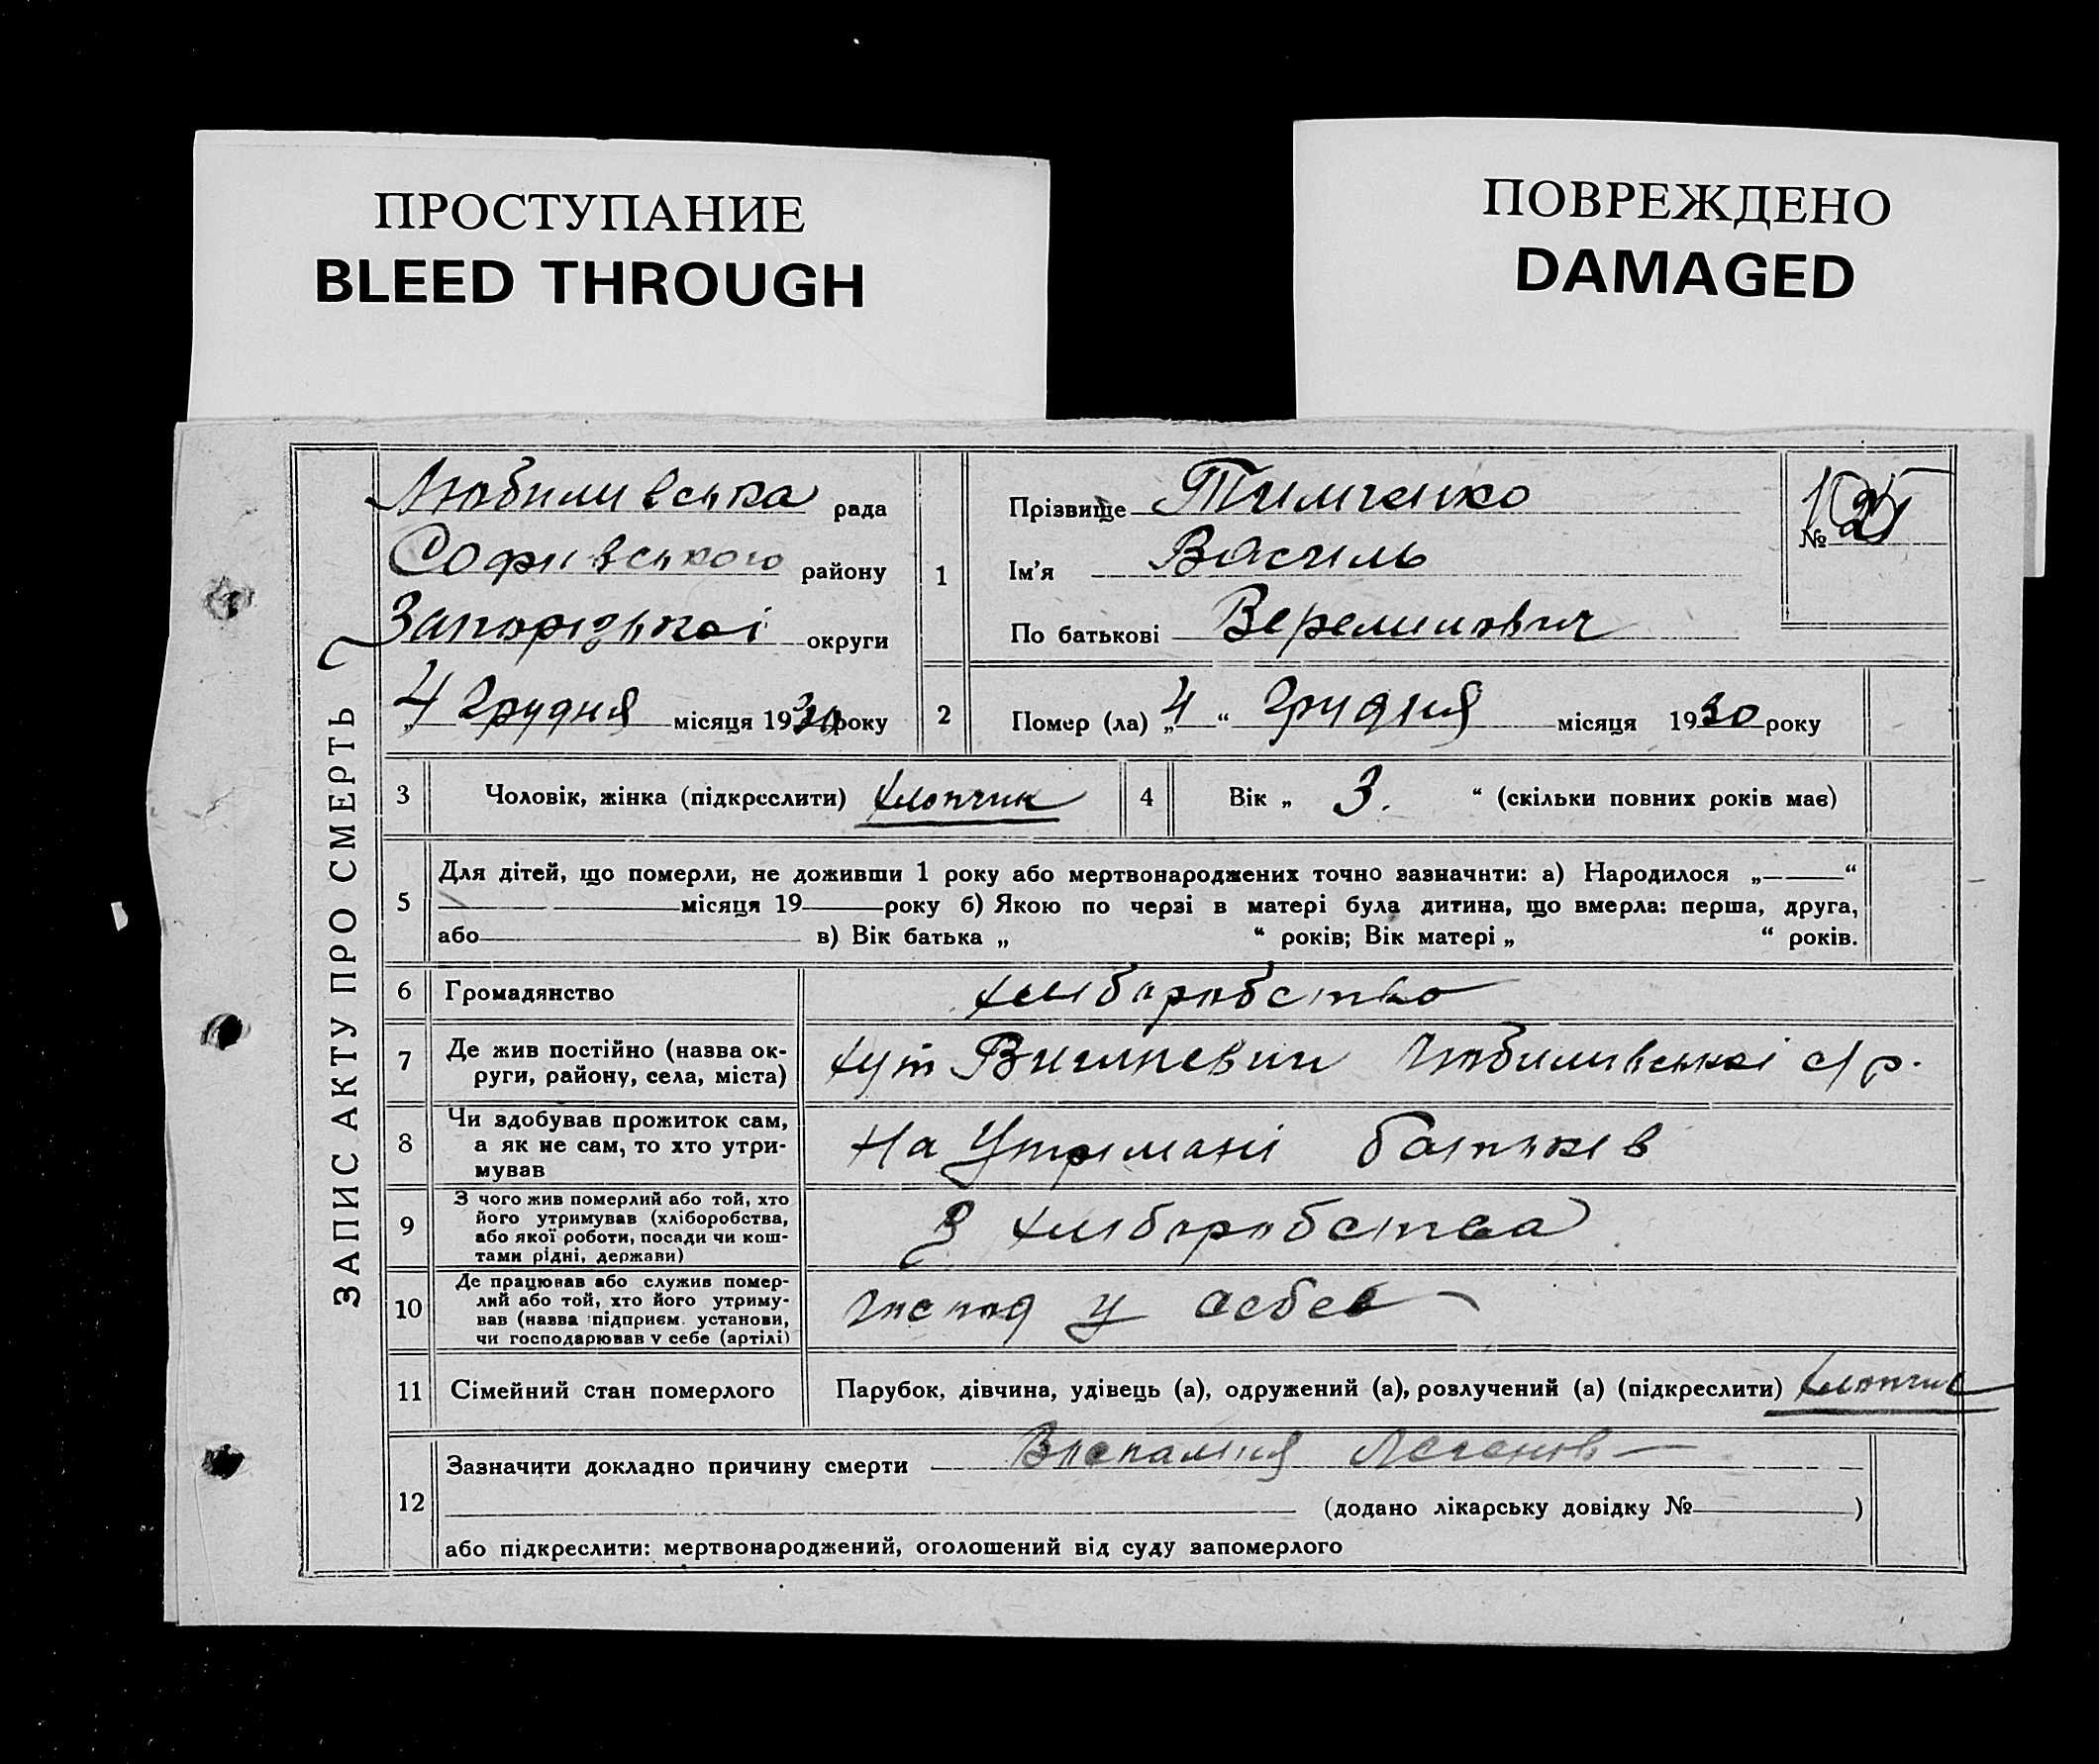 ПРОСТУПАНИЕ
BLEED THROUGH
ПОВРЕЖДЕНО
DAMAGED
ЗАПИС АКТУ ПРО СМЕРТЬ
Любимивська рада
Софиівського району
Запорізькоі округи
„ 4 Грудня місяця 1930 року
1
Прізвище Тимченко
Ім'я Василь
По батькові
№
2 Помер (ла) „ 4 “ Грудня місяця 1930 року
3 Чоловік, жінка (підкреслити) хлопчик
4 Вік „ 3. “ (скільки повних років має)
5 Для дітей, що померли, не доживши 1 року або мертвонароджених точно зазначити: а) Народилося „ “
місяця 19 року б) Якою по черзі в матері була дитина, що вмерла: перша, друга,
або в) Вік батька „ “ років; Вік матері „ “ років.
6 Громадянство хлиборобство
7 Де жив постійно (назва ок-
руги, району, села, міста)
хут Любимивськоі с/р.
8 Чи здобував прожиток сам,
а як не сам, то хто утри-
мував
На Утримані батьків
9 З чого жив померлий або той, хто
його утримував (хліборобства,
або якої роботи, посади чи кош-
тами рідні, держави)
З хлиборобства
10 Де працював або служив помер-
лий або той, хто його утриму-
вав (назва підприєм. установи,
чи господарював у себе (артілі)
господ у себе
11 Сімейний стан померлого
Парубок, дівчина, удівець (а), одружений (а), розлучений (а) (підкреслити) хлопчик
12 Зазначити докладно причину смерти Воспаління Легенів
(додано лікарську довідку № )
або підкреслити: мертвонароджений, оголошений від суду запомерлого